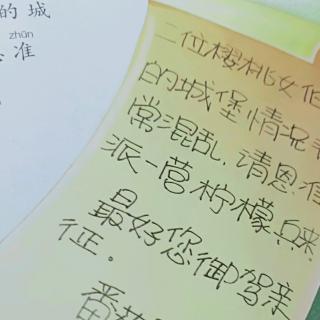 的城
zhǔn
准
二位樱桃女伯
的城堡情况
常混乱,请恩准
派一营柠檬兵来
最好您御驾亲
征。
番茄